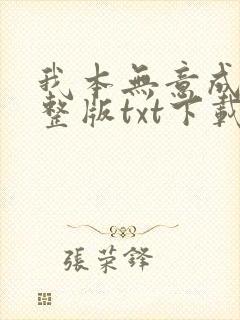 我本無意成
整版txt下載
張荣鋒